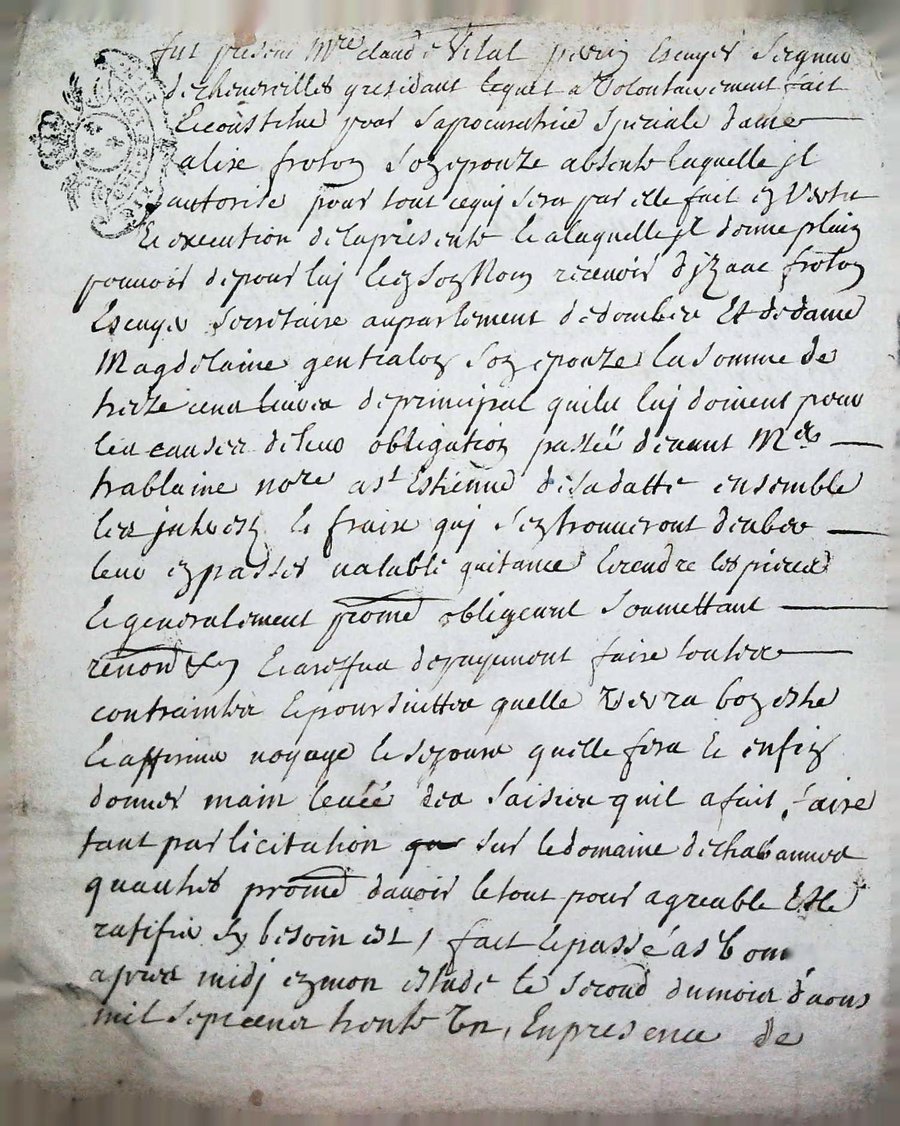 fut present Mre claude Vital perrin Escuyer Seigneur
dechenereilles y residant lequel a Volontairement fait
Et constitué pour Saprocuratrice Speciale dame
alixe froton Son epouze absente laquelle jl
autorise pour tout cequi sera par elle fait en Vertu
Et execution delapresente Et alaquelle jl donne plain
pouvoir depour luj Et en Son Nom recevoir djzaac froton
Escuyer Secretaire auparlement dedombes Et dedame
Magdelaine gentialon Son epouze La Somme de
treize cens Livres deprincipal quils luj doivent pour
Les causes deleur obligation passée devant Me
trablaine nore a st Estienne desadatte ensemble
Les jnterest Et fraix quj s'en trouveront deubs
leur en passer valable quitance Et rendre les pieces
Et generalement promet obligeant Soumettant
renoncant Et arreffus depayement faire toutes
contraintes Et poursuittes quelle verra bon estre
Et affirmer voyage Et sejours quelle fera Et enfin
donner main levée des saisies quil a fait faire
tant par licitation que sur le domaine dechabannes
quautres promet davoir le tout pour agreable Et le
ratifier Sy besoin est, fait Et passé a st bon
apres midj en mon estude le second dumois daoust
mil sept cens trente Un, En presence de